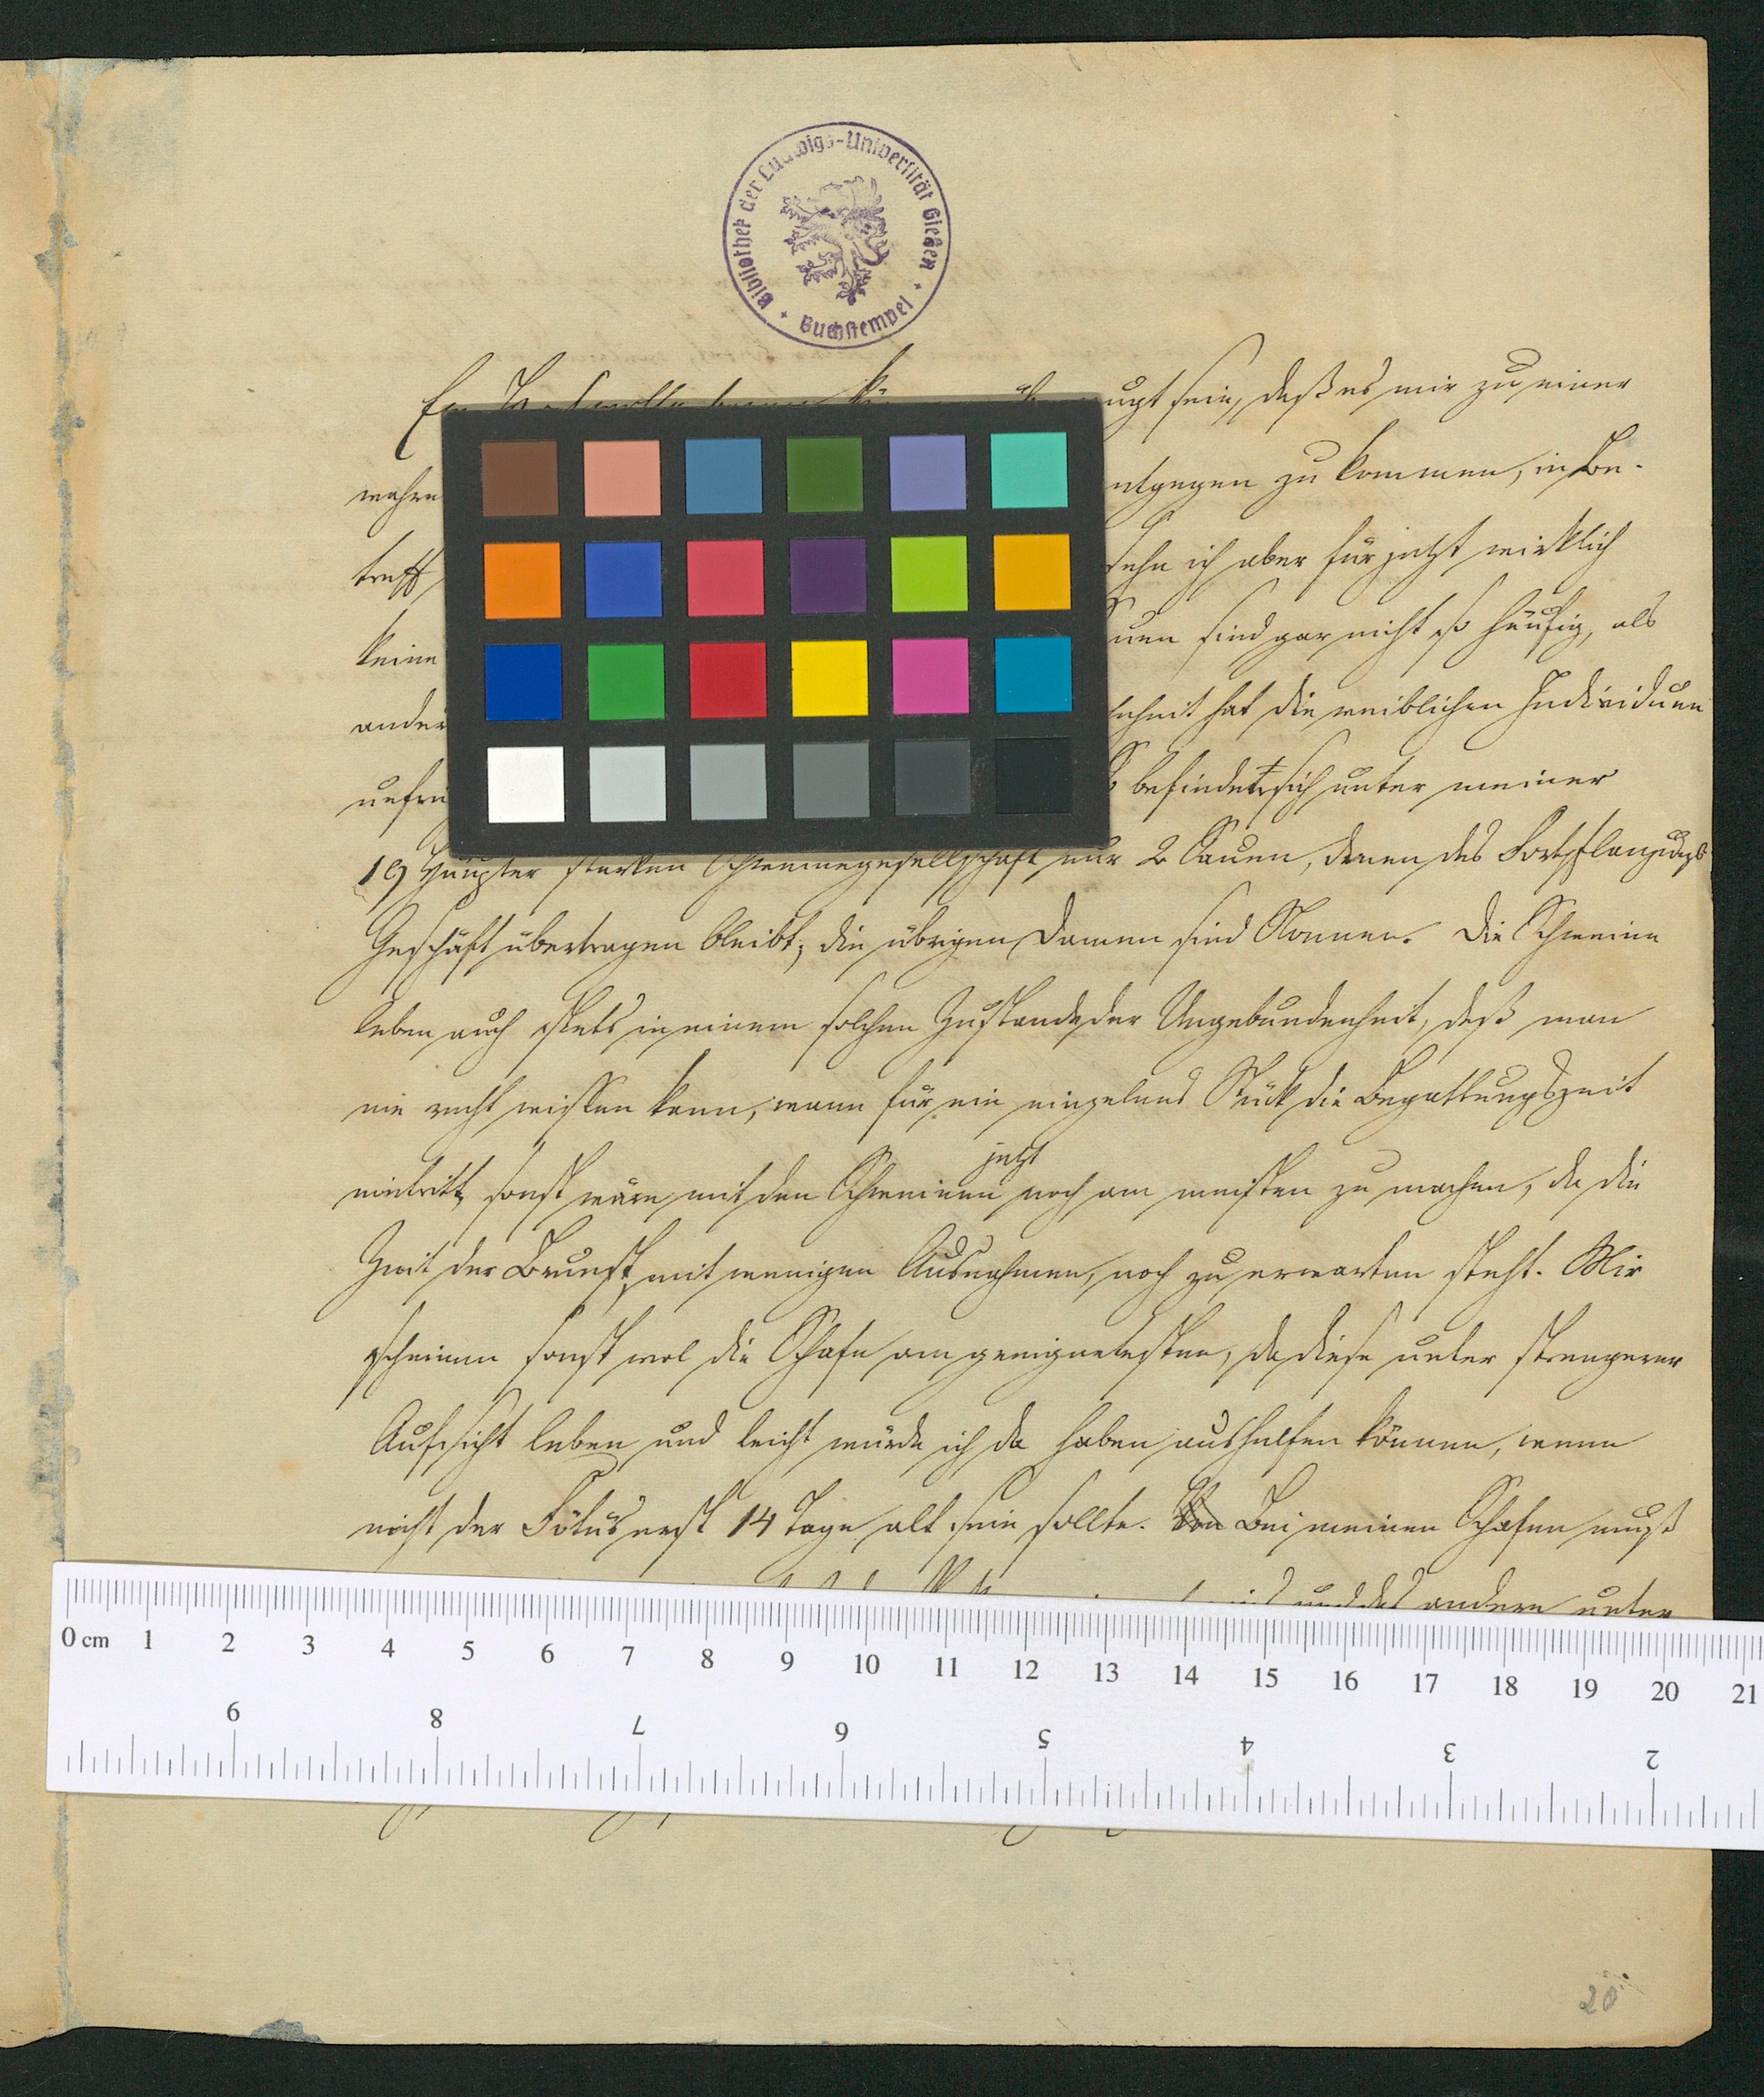 Bibliothek der Ludwigs-Universität Gießen
Buchstempel
sein, daß es mir zu einer
wahre
entgegen zu kommen, in Be-
treff,
sehe ich aber für jetzt wirklich
keine
sind gar nicht so häufig, als
ander
hat die weiblichen Individuen
befindet sich unter meiner
19 Häupter starken Schweinegesellschaft nur 2 Sauen, denen das Fortpflanzungs
Geschäft übertragen bleibt; die übrigen Damen sind Nonnen. Die Schweine
leben auch stets in einem solchen Zustande der Ungebundenheit, daß man
nie recht wissen kann, wann für ein einzelnes Stück die Begattungszeit
jetzt
eintritt, sonst wäre mit den Schweinen noch am meisten zu machen, da die
Zeit der Brunst, mit wenigen Ausnahmen, noch zu erwarten steht. Mir
scheinen sonst wol die Schafe am geeignetesten, da diese unter strengerer
Aufsicht leben und leicht würde ich da haben aushelfen können, wenn
nicht der Fötus erst 14 Tage alt sein sollte. Bei meinen Schafen muß
und das andere unter
0 cm 1 2 3 4 5 6 7 8 9 10 11 12 13 14 15 16 17 18 19 20 21
9 8 7 6 5 4 3 2
20